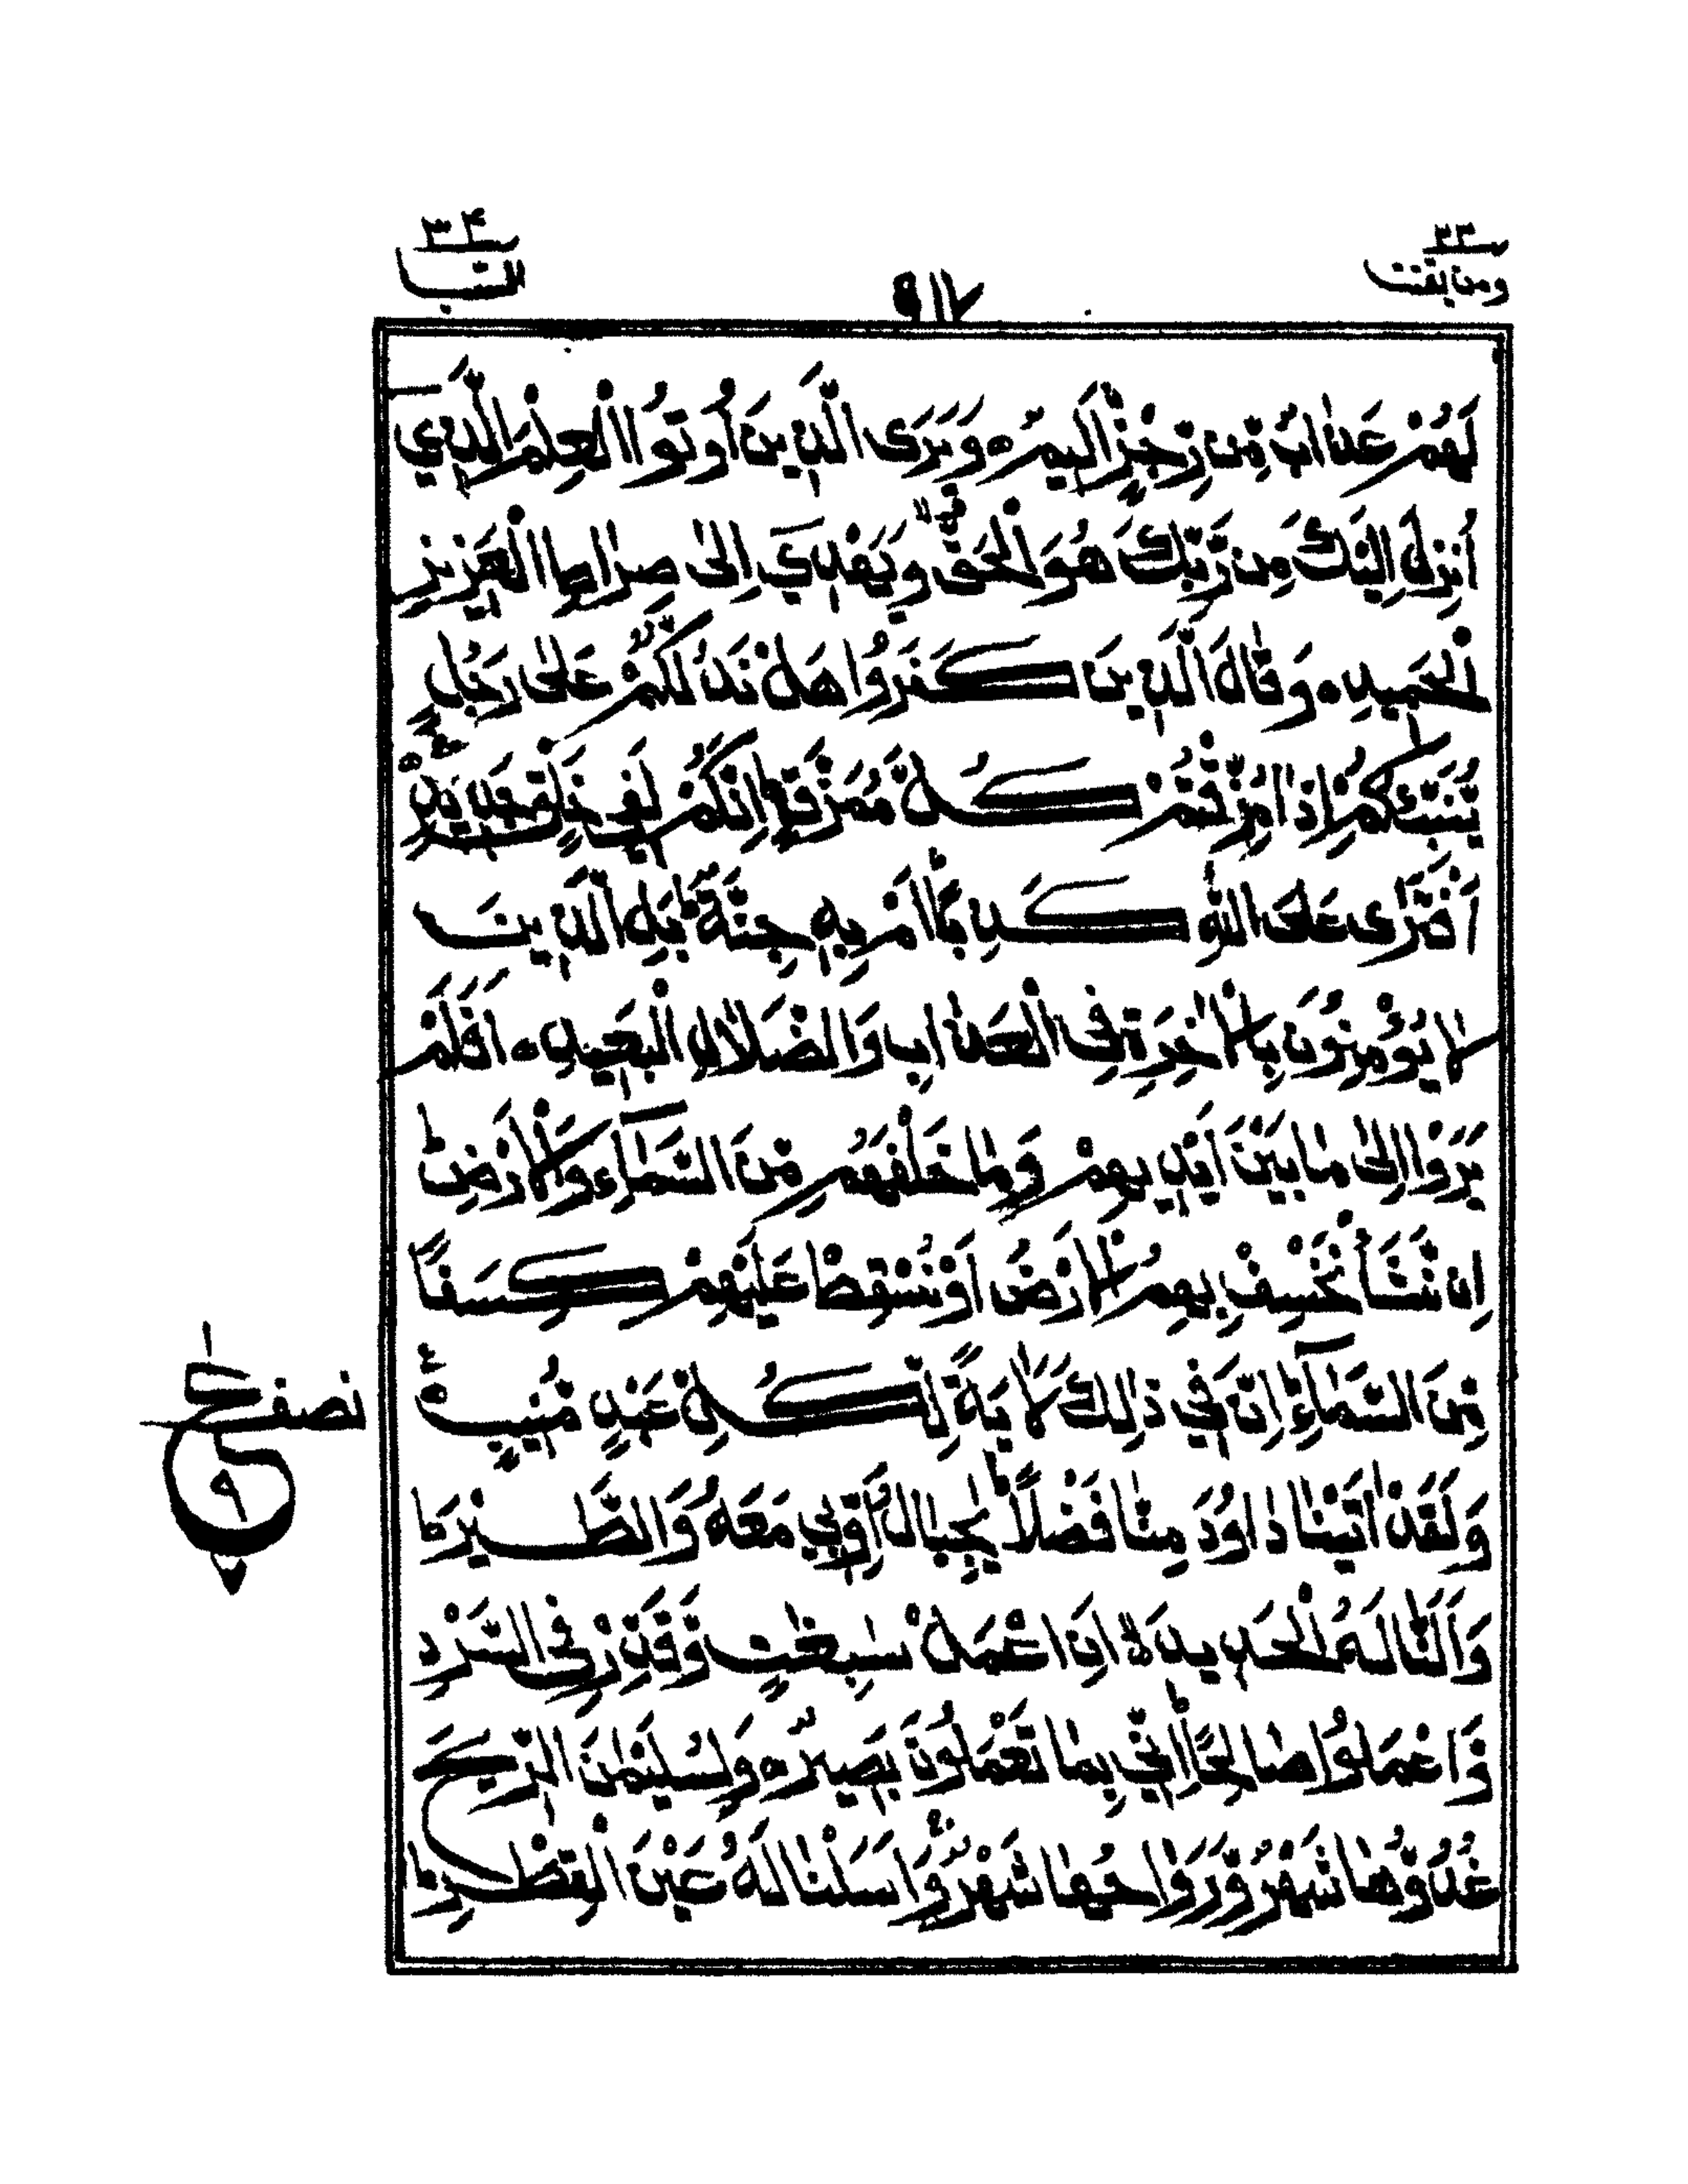 ٣٤
السّبا
٩١٧
٣٣
ومن يقنت
لَهُمْ عَذَابٌ مِّن رِّجْزٍ اَلِيمٌ ه وَيَرَى الَّذِينَ اُوتُوا الْعِلْمَ الَّذِيٓ
اُنزِلَ اِلَيْكَ مِن رَّبِّكَ هُوَ الْحَقَّ وَيَهْدِيٓ اِلٰى صِرَاطِ الْعَزِيزِ
الْحَمِيدِ ه وَقَالَ الَّذِينَ كَفَرُوا هَلْ نَدُلُّكُمْ عَلٰى رَجُلٍ
يُّنَبِّئُكُمْ اِذَا مُزِّقْتُمْ كُلَّ مُمَزَّقٍ اِنَّكُمْ لَفِي خَلْقٍ جَدِيدٍ ه
اَفْتَرٰى عَلَى اللّٰهِ كَذِبًا اَمْ بِهٖ جِنَّةٌ ط بَلِ الَّذِينَ
لَا يُؤْمِنُونَ بِالْاٰخِرَةِ فِى الْعَذَابِ وَالضَّلَالِ الْبَعِيدِ ه اَفَلَمْ
يَرَوْا اِلٰى مَا بَيْنَ اَيْدِيهِمْ وَمَا خَلْفَهُمْ مِّنَ السَّمَآءِ وَالْاَرْضِ ط
اِن نَّشَأْ نَخْسِفْ بِهِمُ الْاَرْضَ اَوْ نُسْقِطْ عَلَيْهِمْ كِسَفًا
مِّنَ السَّمَآءِ ط اِنَّ فِي ذٰلِكَ لَاٰيَةً لِّكُلِّ عَبْدٍ مُّنِيبٍ ه
وَلَقَدْ اٰتَيْنَا دَاوُدَ مِنَّا فَضْلًا ط يٰجِبَالُ اَوِّبِي مَعَهُ وَالطَّيْرَ ط
وَاَلَنَّا لَهُ الْحَدِيدَ ه لا اَنِ اعْمَلْ سٰبِغٰتٍ وَّقَدِّرْ فِى السَّرْدِ
وَاعْمَلُوا صَالِحًا ط اِنِّي بِمَا تَعْمَلُونَ بَصِيرٌ ه وَلِسُلَيْمٰنَ الرِّيحَ
غُدُوُّهَا شَهْرٌ وَّرَوَاحُهَا شَهْرٌ وَّاَسَلْنَا لَهُ عَيْنَ الْقِطْرِ ط
نصف
ع
٩
٧